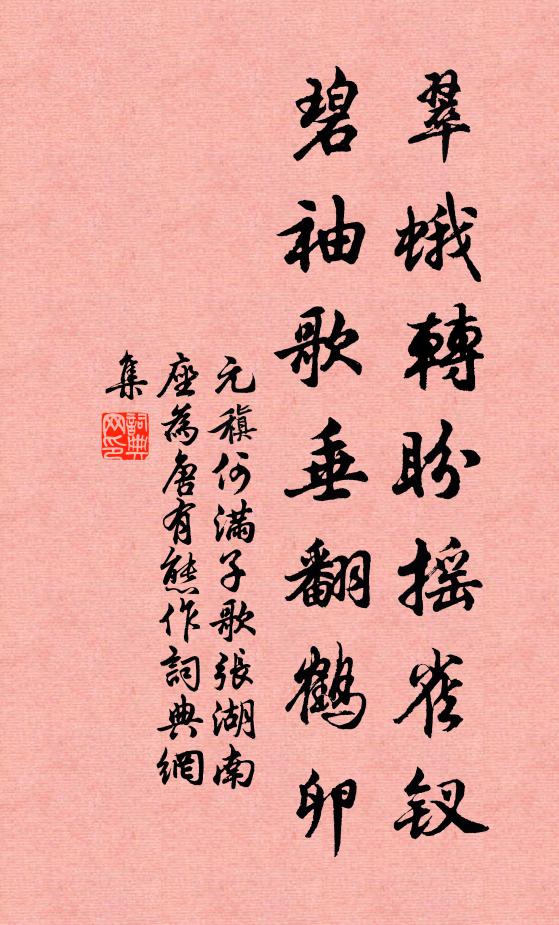 翠蛾轉盼搖雀釵
碧袖歌垂翻鶴卵
元稹何滿子歌張湖南
座為唐有熊作詞典網
集
詞典
网印